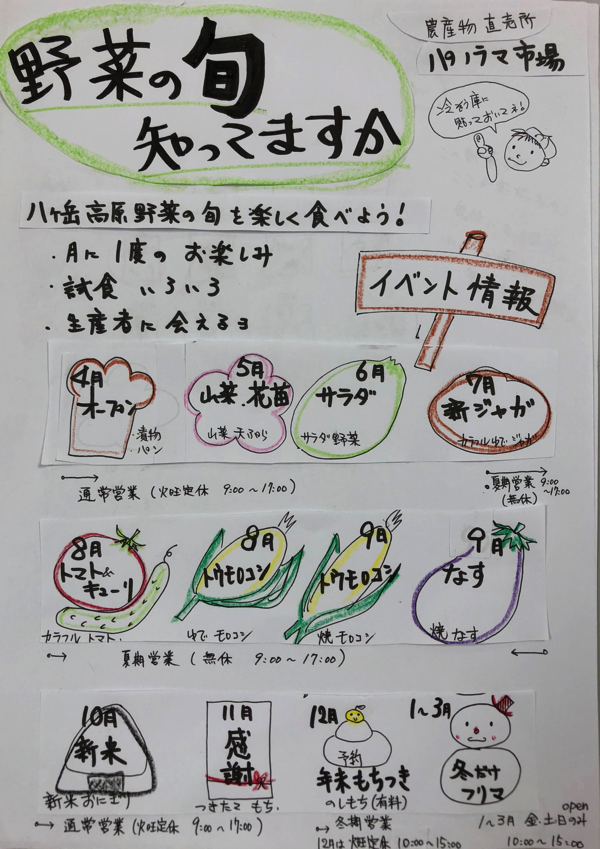 農産物 直売所
パノラマ市場
野菜の旬
知ってますか
冷ぞう庫に
貼っておいてネ!
八ヶ岳高原野菜の旬を楽しく食べよう!
・月に1度の お楽しみ
・試食 いろいろ
・生産者に会えるヨ
イベント情報
4月
オープン
・漬物
・パン
5月
山菜・花苗
山菜 天ぷら
6月
サラダ
サラダ野菜
7月
新ジャガ
カラフルゆでジャガ
通常営業 (火曜定休 9:00~17:00)
夏期営業 9:00
(無休) ~17:00
8月
トマト&
キューリ
カラフルトマト.
8月
トウモロコシ
ゆで モロコシ
9月
トウモロコシ
焼 モロコシ
9月
なす
焼 なす
→ 夏期営業 (無休 9:00~17:00) ←
10月
新米
新米おにぎり
11月
感謝
つきたて もち.
12月
予約
年末もちつき
のしもち(有料)
1~3月
冬だけ
フリマ
→ 通常営業 (火曜定休 9:00~17:00)
→ 冬期営業
12月は 火曜定休 10:00~15:00
open
1~3月 金.土日のみ
10:00~15:00